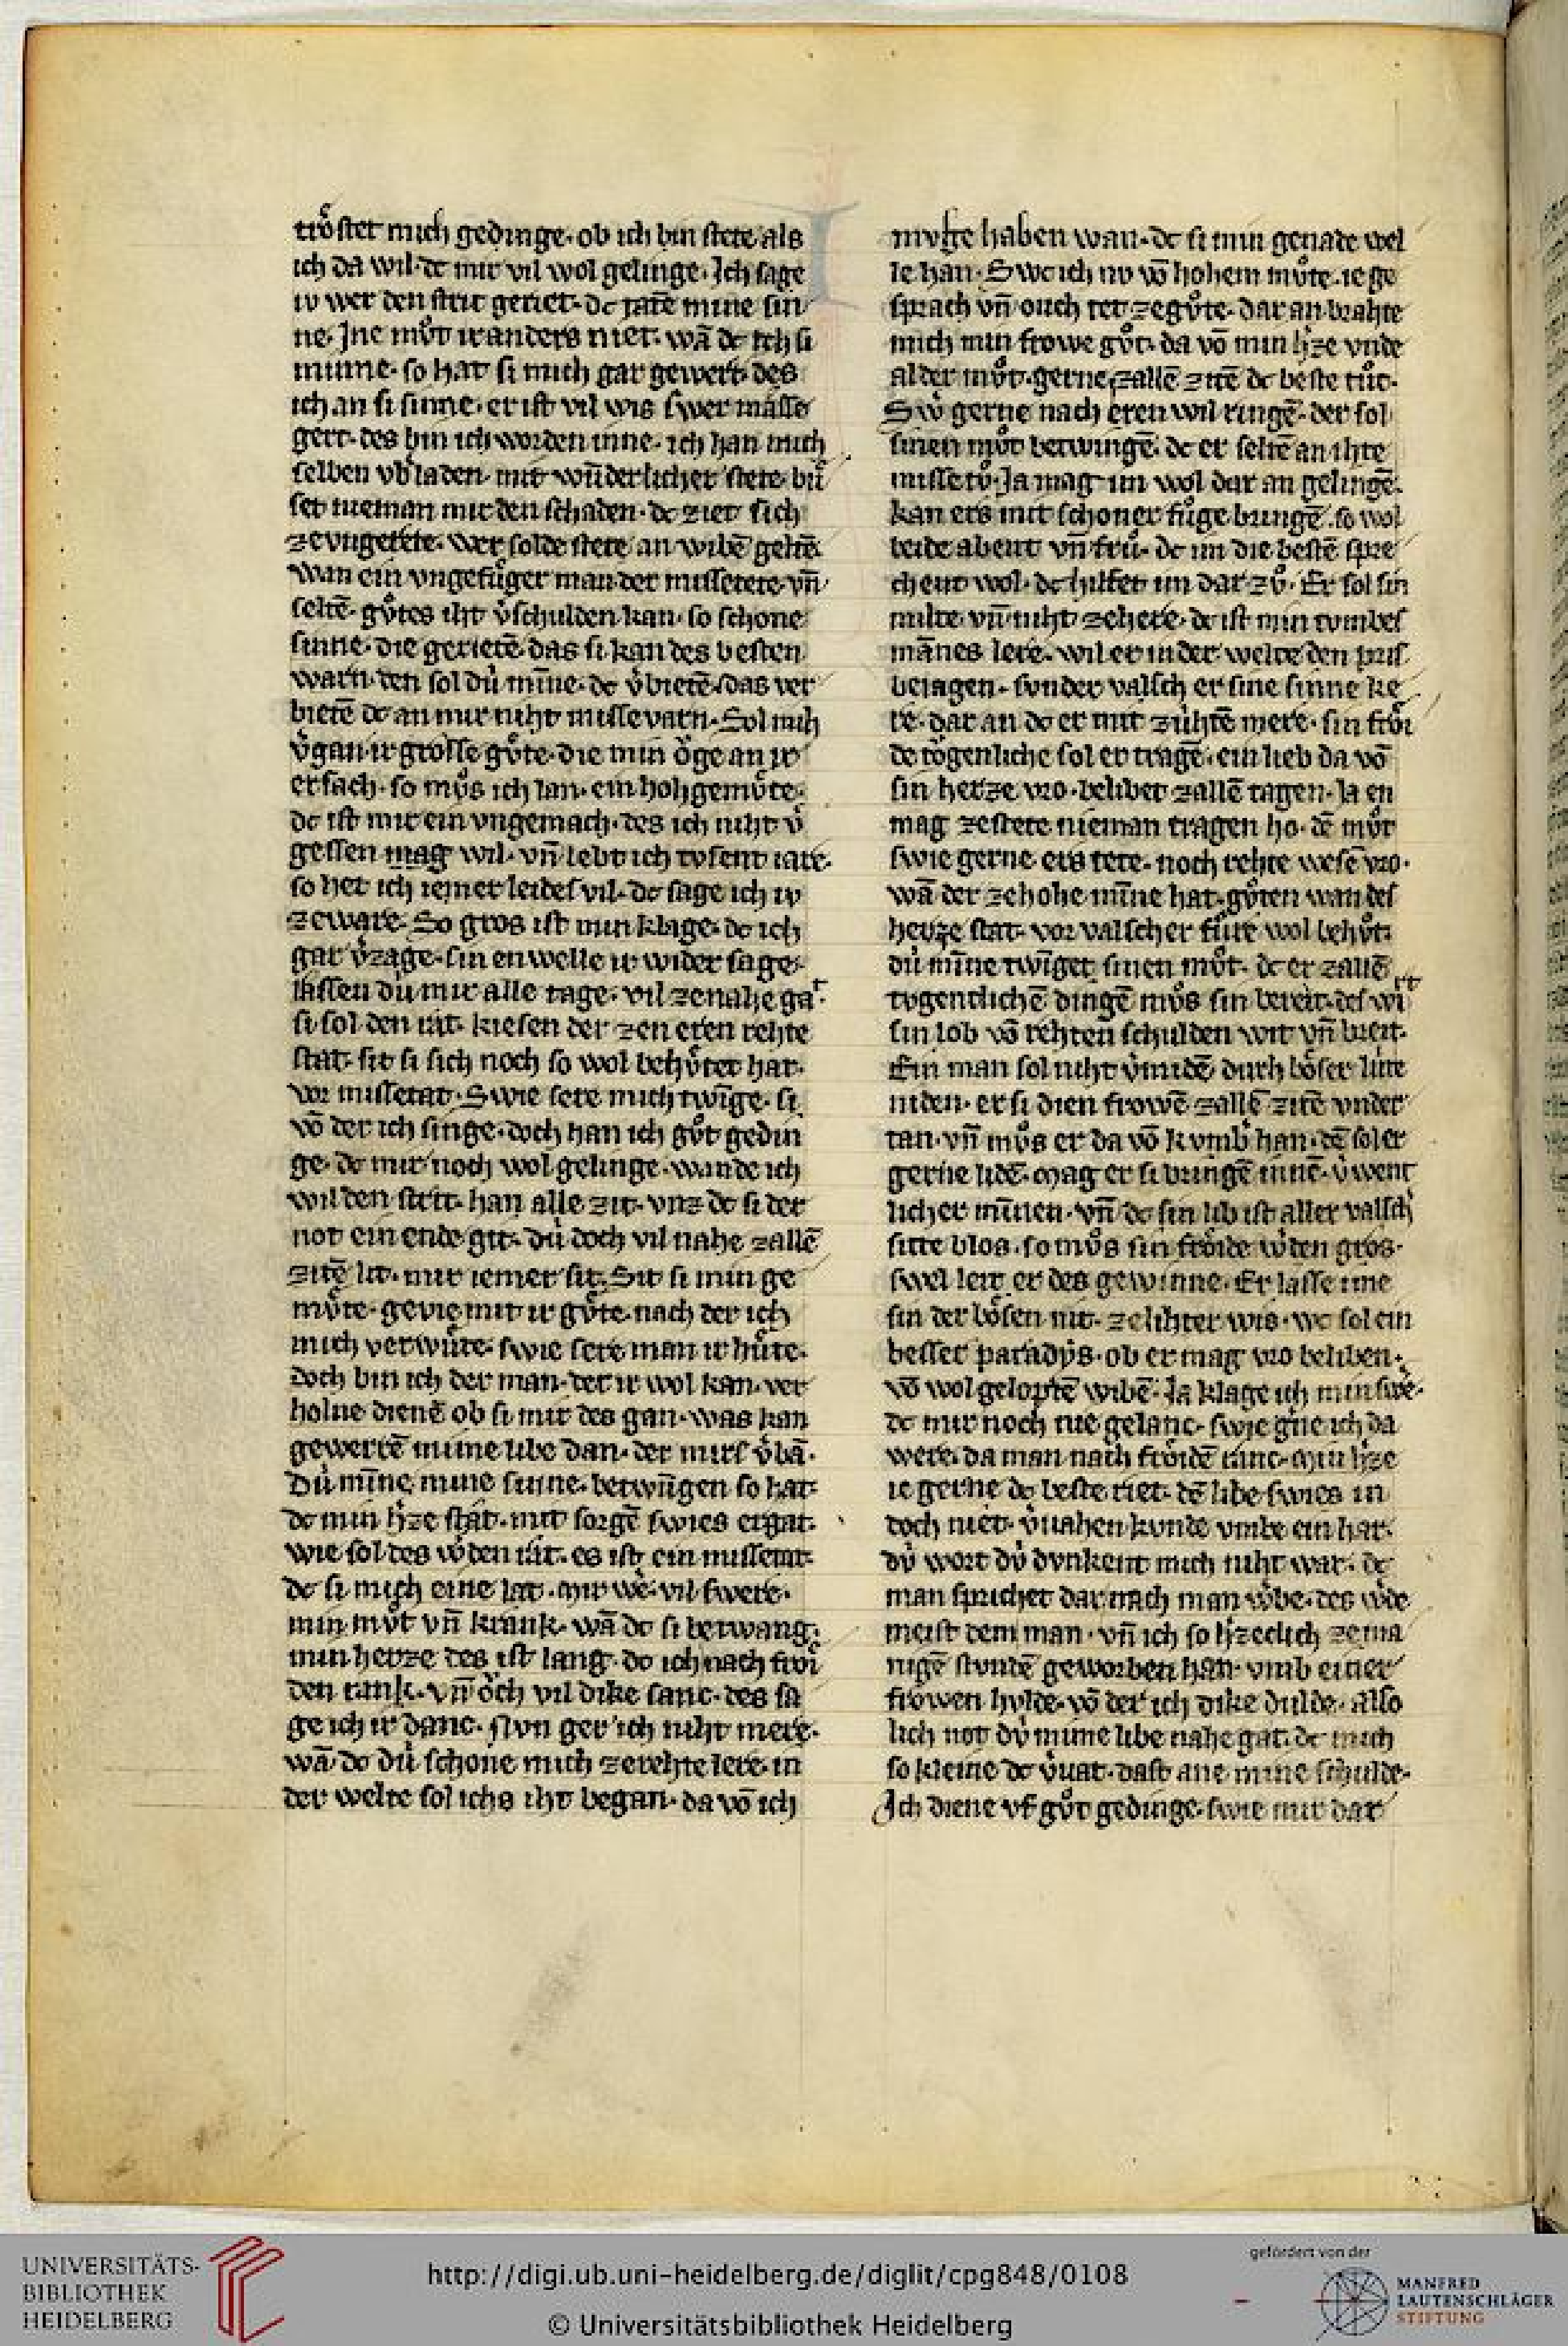 troͤstet mich gedinge· ob ich bin stete als
ich da wil· dc mir vil wol gelinge· Ich sage
iv wer den strit geriet· dc tatē mine sin
ne· Jne mvͦt ir anders niet· wā dc ich si
minne· so hat si mich gar gewert· des
ich an si sinne· er ist vil wis swer masse
gert· des bin ich worden inne· ich han mich
selben vb͛laden· mit wūderlicher stete· buͤ
set nieman mir den schaden· dc ziet sich
zevngerete· wer solde stete an wibē geltē
wan ein vngefuͤger man der missetete· vn̄
seltē· guͦtes iht v͛schulden kan· so schone
sinne· die gerietē das si kan des besten
warn· den sol du̍ mīne· dc v͛bietē· das ver
bietē dc an mir niht missevarn· Sol mih
v͛gan· ir grosse guͤte· die min oͮge an ir
ersach· so mvͦs ich lan· ein hohgemvͤte·
dc ist mir ein vngemach· des ich niht v͛
gessen mag wil· vn̄ lebt ich tvsent iare·
so het ich iemer leides vil· dc sage ich iv
zeware· So gros ist min klage· dc ich
gar v͛zage· sin en welle ir wider sage
lassen du̍ mir alle tage· vil zenahe gat·
si sol den rat· kiesen der zen eren rehte
stat· sit si sich noch so wol behvͤtet hat·
vor missetat· Swie sere mich twīge· si
vō der ich singe· doch han ich gvͦt gedin
ge· dc mir noch wol gelinge· wande ich
wil den strit· han alle zit· vnz dc si der
not ein ende git· du̍ doch vil nahe zallē
zitē lit· mir iemer sit· Sit si min ge
mvͤte· gevie mit ir guͤte· nach der ich
mich verwuͤte· swie sere man ir huͤte·
doch bin ich der man· der ir wol kan· ver
holne dienē ob si mir des gan· was kan
gewerrē minē libe dan· der mirs v͛bā·
Du̍ mīne mine sinne· betwūgen so hat·
dc min h͛ze stat· mit sorgē swies ergat·
wie sol des w͛den rat· es ist ein missetat·
dc si mich eine lat· mir we· vil swere·
min mvͦt vn̄ krank· wā dc si betwang·
min herze des ist lang· dc ich nach froͤi
den rank· vn̄ oͮch vil dike sanc· des sa
ge ich ir danc· Nvn ger ich niht mere·
wā dc du̍ schone mich zerehte lere· in
der welte sol ichs iht began· da vō ich
mvge haben wan· dc si min genade wel
le han· Swc ich nv vō hohem mvͦte· ie ge
sprach vn̄ ouch tet zegvͦte· dar an brahte
mich min frowe gvͦt· da vō min h͛ze vnde
al der mvͦt· gerne zallē zitē dc beste tuͦt·
Sw͛ gerne nach eren wil ringē· der sol
sinen mvͦt betwingē· dc er seltē an ihte
missetvͦ· Ja mag im wol dar an gelingē·
kan ers mit schoner fuͦge bringē· so wol
beide abent vn̄ fruͦ· dc im die bestē spre
chent wol· dc hilfet im dar zvͦ· Er sol sin
milte· vn̄ niht zehere· dc ist min tvmbes
mānes lere· wil er in der welte den pris
beiagen· svnder valsch er sine sinne ke
re· dar an dc er mit zu̍htē mere· sin froͤi
de tǒgenliche sol er tragē· ein lieb da vō
sin herze vro· belibet zallē tagen· Ja en
mag zestete nieman tragen ho· dē mvͦt
swie gerne ers tete· noch rehte wesē vro·
wā der zehohe mīne hat· guͦten wan des
herze stat· vor valscher fuͦre wol behuͦt·
du̍ mīne twīget sinen mvͦt· dc er zallē
tvgentlichē dingē mvͦs sin bereit· des wirt
sin lob vō rehten schulden wit vn̄ breit·
Ein man sol niht v͛midē· durh boͤser lu̍te
niden· er si dien frowē zallē zitē vnder
tan· vn̄ mvͦs er da vō kvmb͛ han· dē sol er
gerne lidē· Mag er si bringē innē· v͛went
licher mīnen· vn̄ dc sin lib ist aller valsch
sitte blos· so mvͦs sin froͤide w͛den gros·
swel leit er des gewinne· Er lasse ime
sin der boͤsen nit· ze lihter wis· wc sol ein
besser paradys· ob er mag vro beliben·
vō wol geloptē wibē· Ja klage ich min swe·
dc mir noch nie gelanc· swie g͛ne ich da
were· da man nach froͤidē ranc· Min h͛ze
ie gerne dc beste riet· dē libe swies in
doch niet· v͛vahen kvnde vmbe ein har·
dv̍ wort dv̍ dvnkent mich niht war· dc
man sprichet dar nach man w͛be· des w͛de
meist dem man· vn̄ ich so h͛zeclich ze ma
nigē stvndē geworben han· vmb einer
frowen hvlde· vō der ich dike dulde· also
lich not dv̍ minē libe nahe gat· dc mich
so kleine dc v͛vat· dast ane mine schulde·
Ich diene vf gvͦt gedinge· swie mir dar
UNIVERSITÄTS-
BIBLIOTHEK
HEIDELBERG
http://digi.ub.uni-heidelberg.de/diglit/cpg848/0108
© Universitätsbibliothek Heidelberg
gefördert von der
MANFRED
LAUTENSCHLÄGER
STIFTUNG